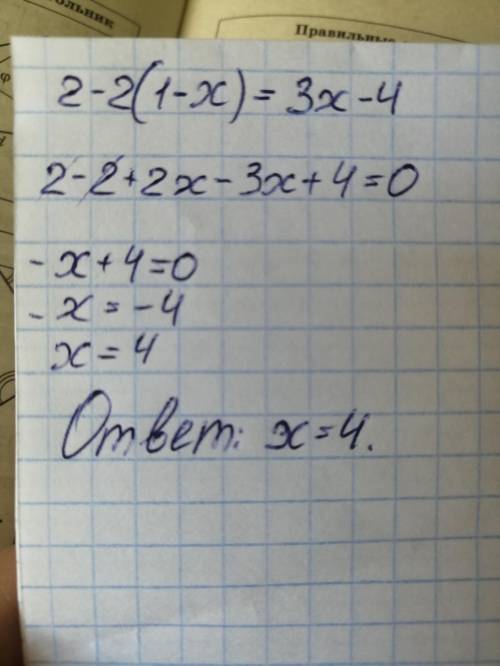 ольник
Правильные
2-2(1-x)=3x-4
2-2+2x-3x+4=0
-x+4=0
-x=-4
x=4
Ответ: x=4.